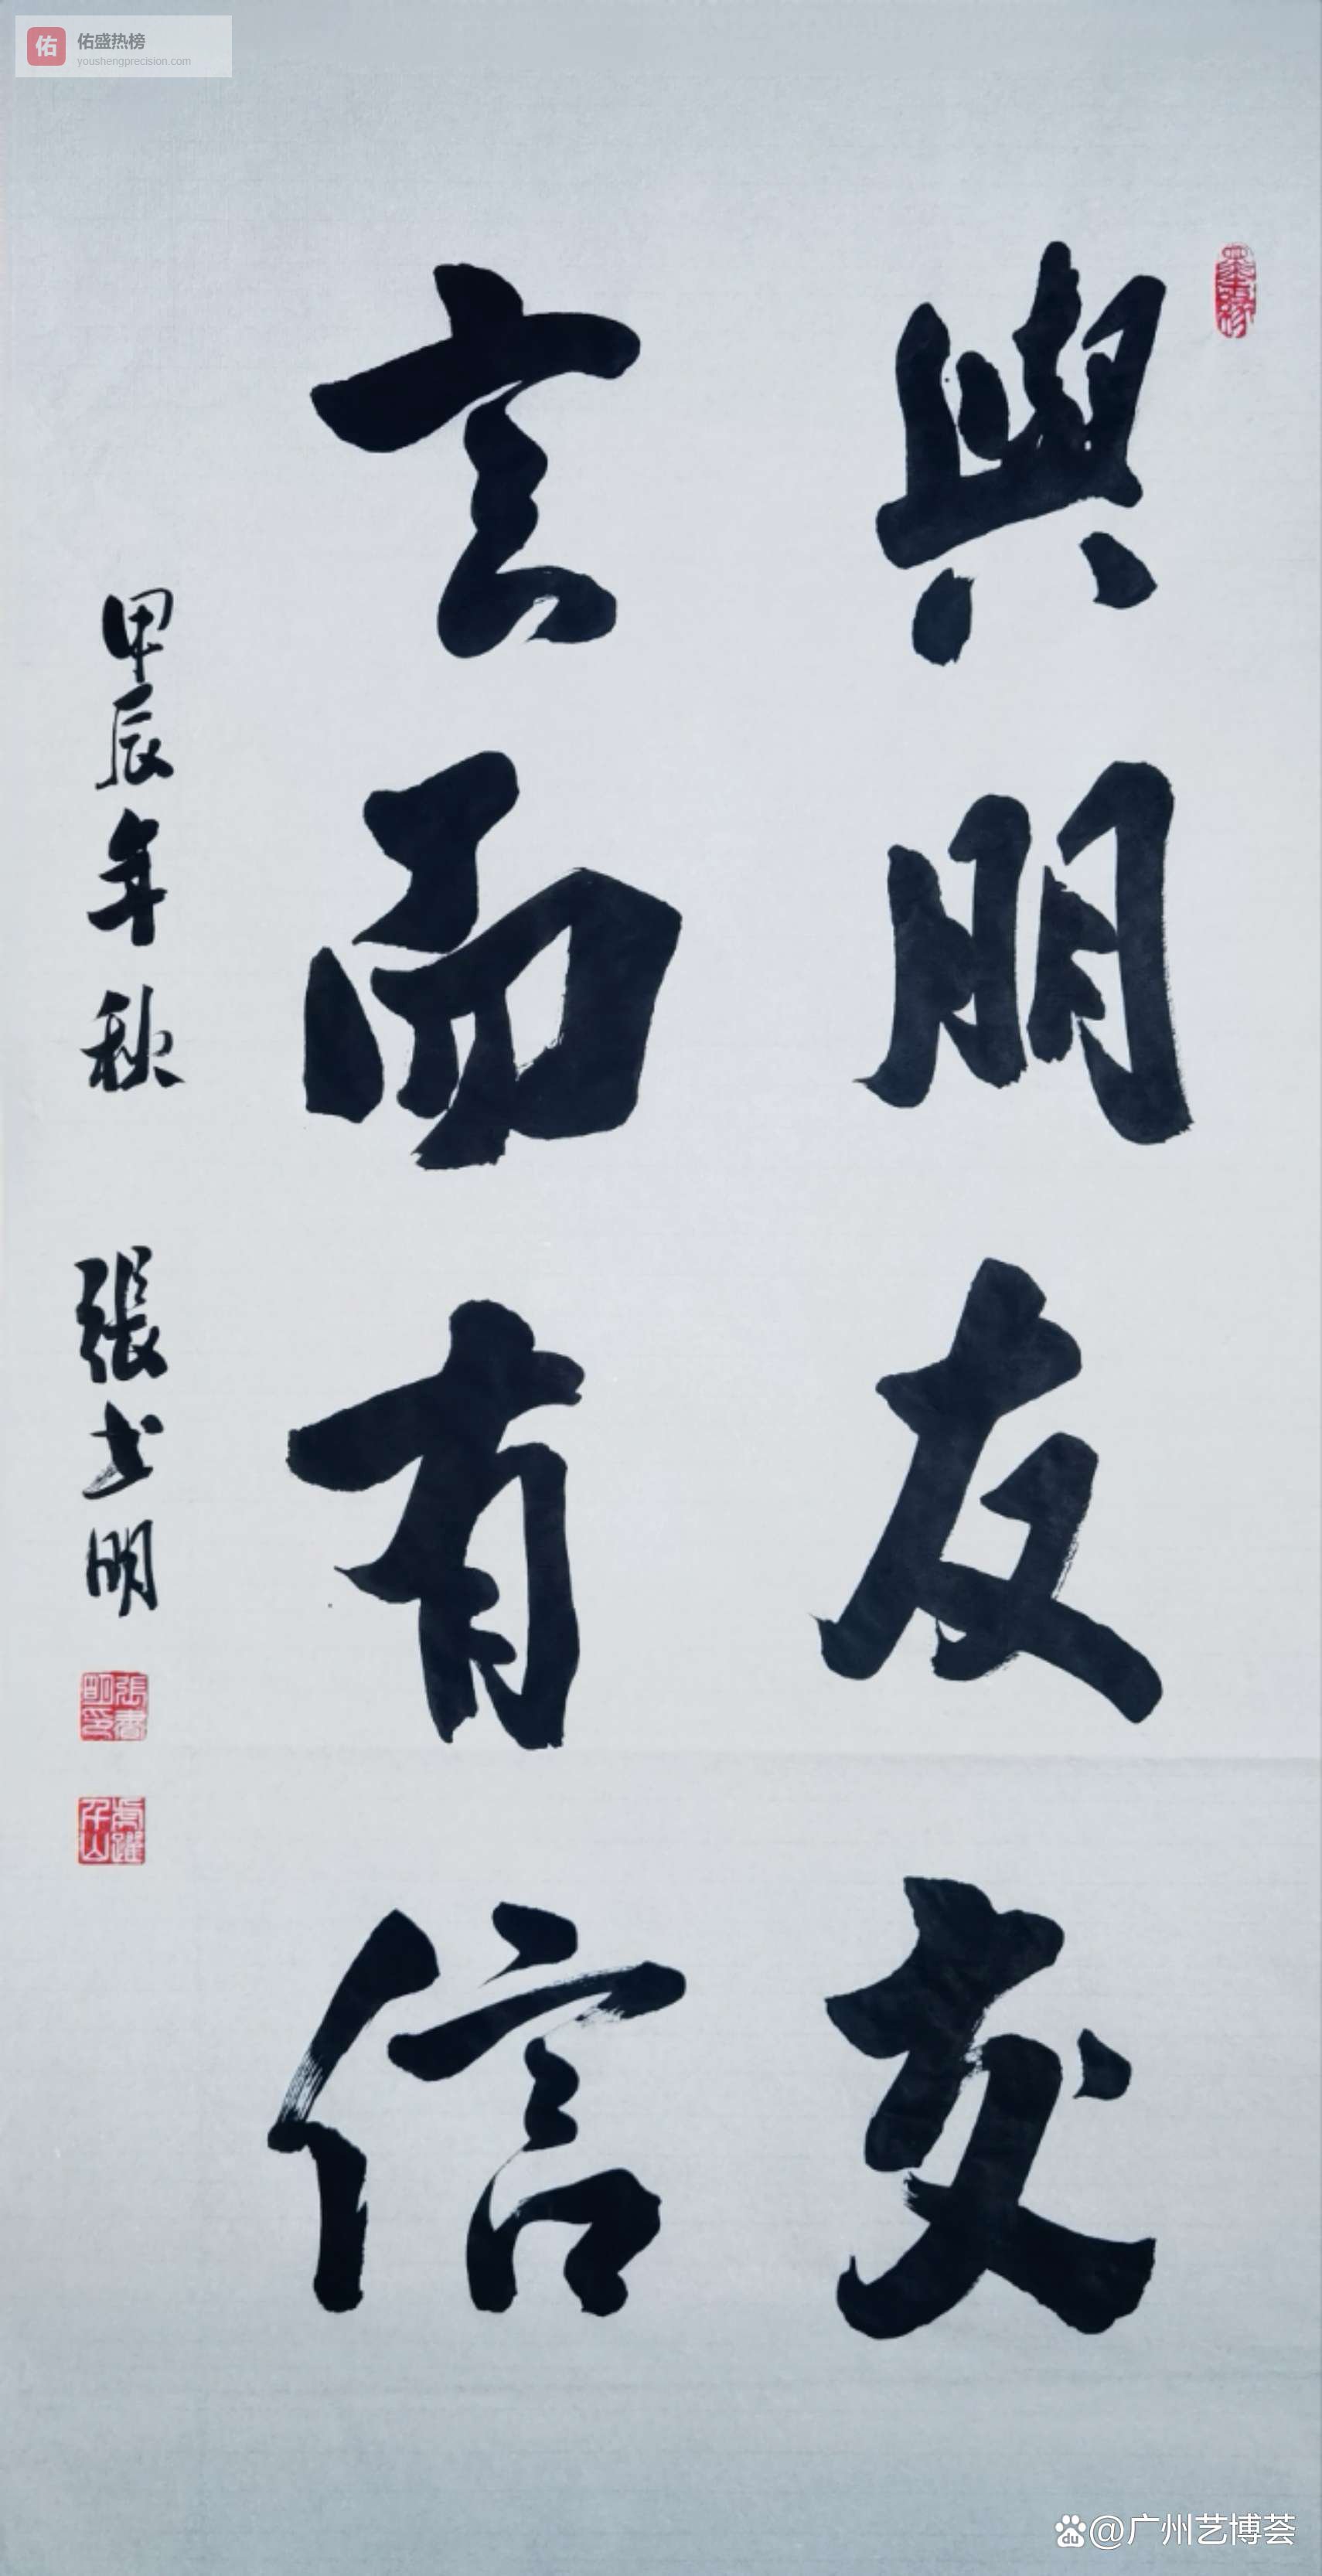 與朋友交
言而有信
甲辰年秋 張書明
張書明印
佑盛热榜
youshengprecision.com
@广州艺博荟